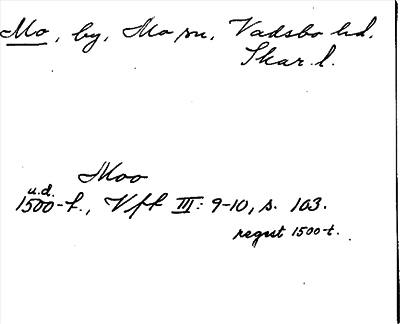 Mo, by, Mo sn, Vadsbo hd,
Skar. l.
Moo
u.d.
1500-t., Vft III: 9-10, s. 103.
regest 1500-t.